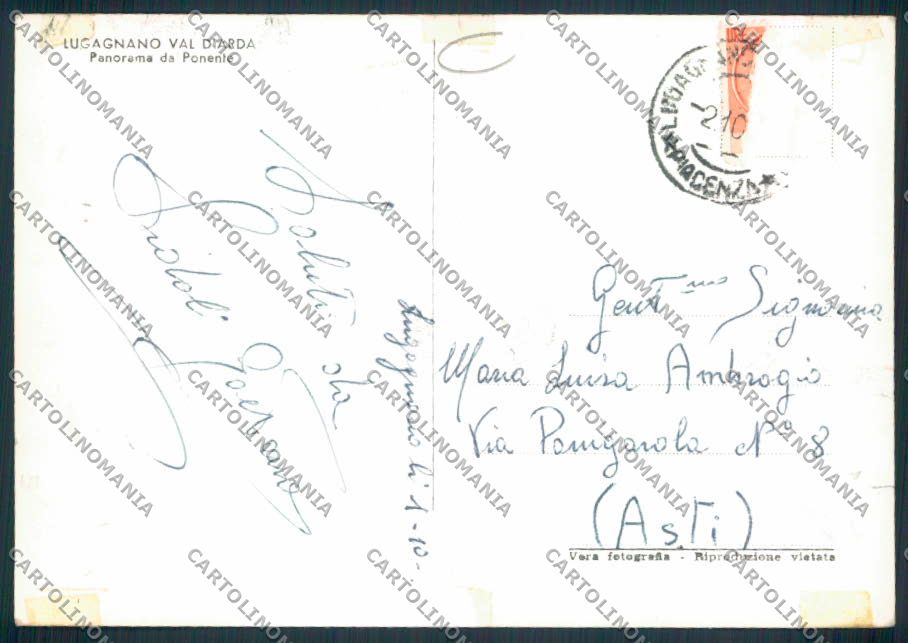 LUGAGNANO VAL D'ARDA
Panorama da Ponente
Saluti da
Gaetano
Lugagnano li 1-10-
2.10
PIACENZA
Gent.mo Signorina
Maria Luisa Ambrogio
Via Pomgarola N° 8
(Asti)
Vera fotografia - Riproduzione vietata
CARTOLINOMANIA